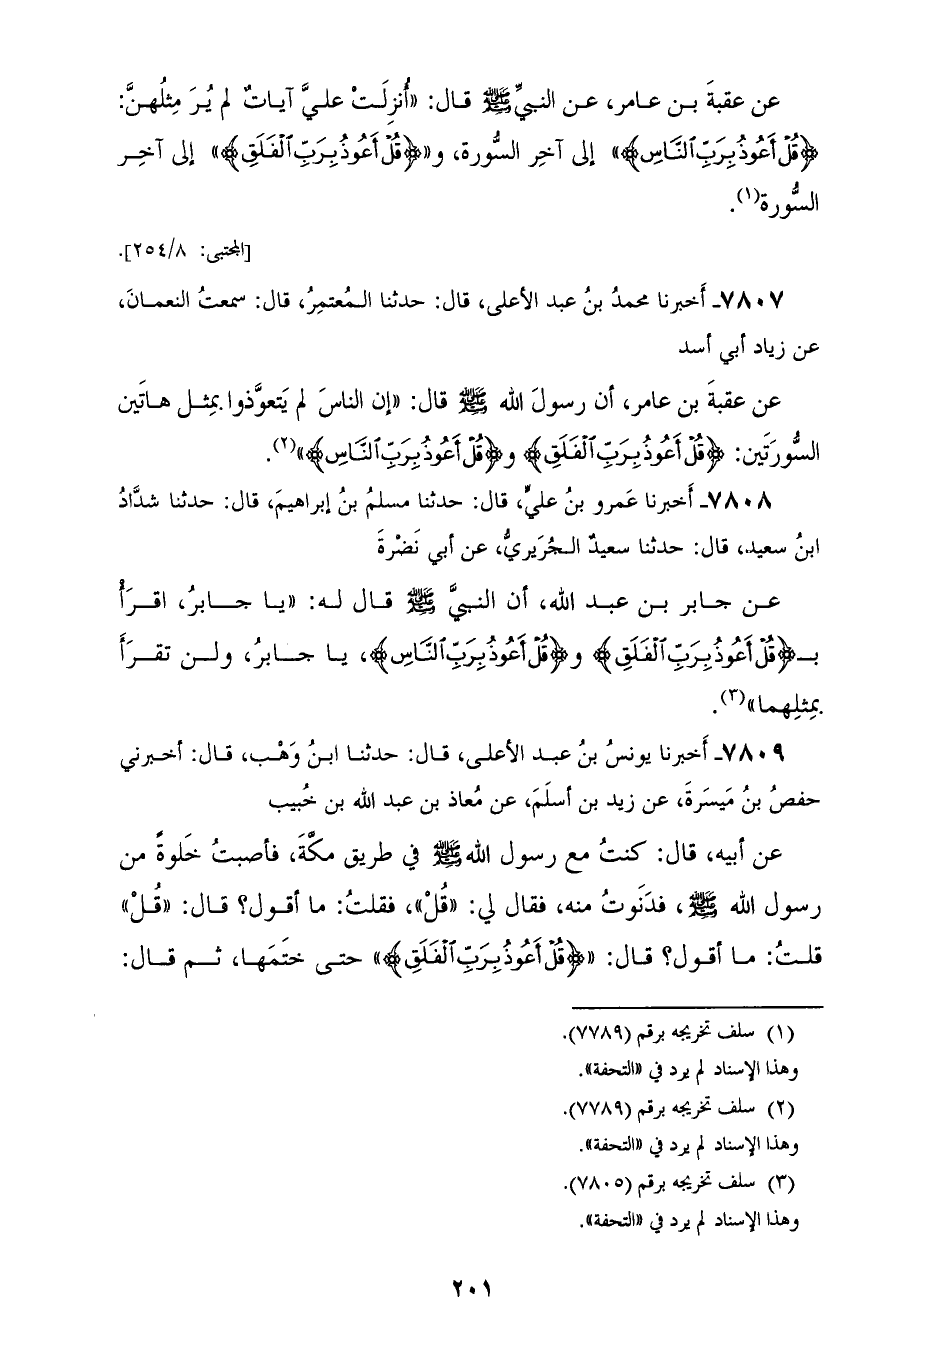 عن عقبةَ بـن عـامر، عـن النبيِّ ﷺ قـال: «أُنزِلَـتْ علـيَّ آيـاتٌ لم يُـرَ مِثلُهـنَّ:
﴿قُلْ أَعُوذُ بِرَبِّ ٱلنَّاسِ﴾» إلى آخرِ السُّورة، و«﴿قُلْ أَعُوذُ بِرَبِّ ٱلْفَلَقِ﴾» إلى آخـِر
السُّورة(١).
[المجتبى: ٢٥٤/٨].
٧٨٠٧ـ أَخبرنا محمدُ بنُ عبد الأعلى، قال: حدثنا المُعتمِرُ، قال: سمعتُ النعمانَ،
عن زياد أبي أسد
عن عقبةَ بن عامر، أن رسولَ الله ﷺ قال: «إن الناسَ لم يَتعوَّذوا بمِثـل هـاتَين
السُّورَتَين: ﴿قُلْ أَعُوذُ بِرَبِّ ٱلْفَلَقِ﴾ و﴿قُلْ أَعُوذُ بِرَبِّ ٱلنَّاسِ﴾»(٢).
٧٨٠٨ـ أَخبرنا عَمرو بنُ عليٍّ، قال: حدثنا مسلمُ بنُ إبراهيمَ، قال: حدثنا شدَّادُ
ابنُ سعيد، قال: حدثنا سعيدٌ الجُرَيريُّ، عن أبي نَضْرةَ
عـن جـابر بـن عبـد الله، أن النبيَّ ﷺ قـال لـه: «يـا جـابرُ، اقـرَأْ
بـ﴿قُلْ أَعُوذُ بِرَبِّ ٱلْفَلَقِ﴾ و﴿قُلْ أَعُوذُ بِرَبِّ ٱلنَّاسِ﴾، يـا جـابرُ، ولـن تقـرَأَ
بمِثلِهما»(٣).
٧٨٠٩ـ أَخبرنا يونسُ بنُ عبـد الأعلى، قـال: حدثنـا ابـنُ وَهْـب، قـال: أخـبرني
حفصُ بنُ مَيسَرةَ، عن زيد بن أسلَمَ، عن مُعاذ بن عبد الله بن خُبيب
عن أبيه، قال: كنتُ مع رسول الله ﷺ في طريق مكَّةَ، فأصبتُ خَلوةً من
رسول الله ﷺ، فدَنَوتُ منه، فقال لي: «قُلْ»، فقلتُ: ما أقول؟ قـال: «قُـلْ»
قلتُ: مـا أقـول؟ قـال: «﴿قُلْ أَعُوذُ بِرَبِّ ٱلْفَلَقِ﴾» حتـى ختَمَهـا، ثـم قـال:
(١) سلف تخريجه برقم (٧٧٨٩).
وهذا الإسناد لم يرد في «التحفة».
(٢) سلف تخريجه برقم (٧٧٨٩).
وهذا الإسناد لم يرد في «التحفة».
(٣) سلف تخريجه برقم (٧٨٠٥).
وهذا الإسناد لم يرد في «التحفة».
٢٠١